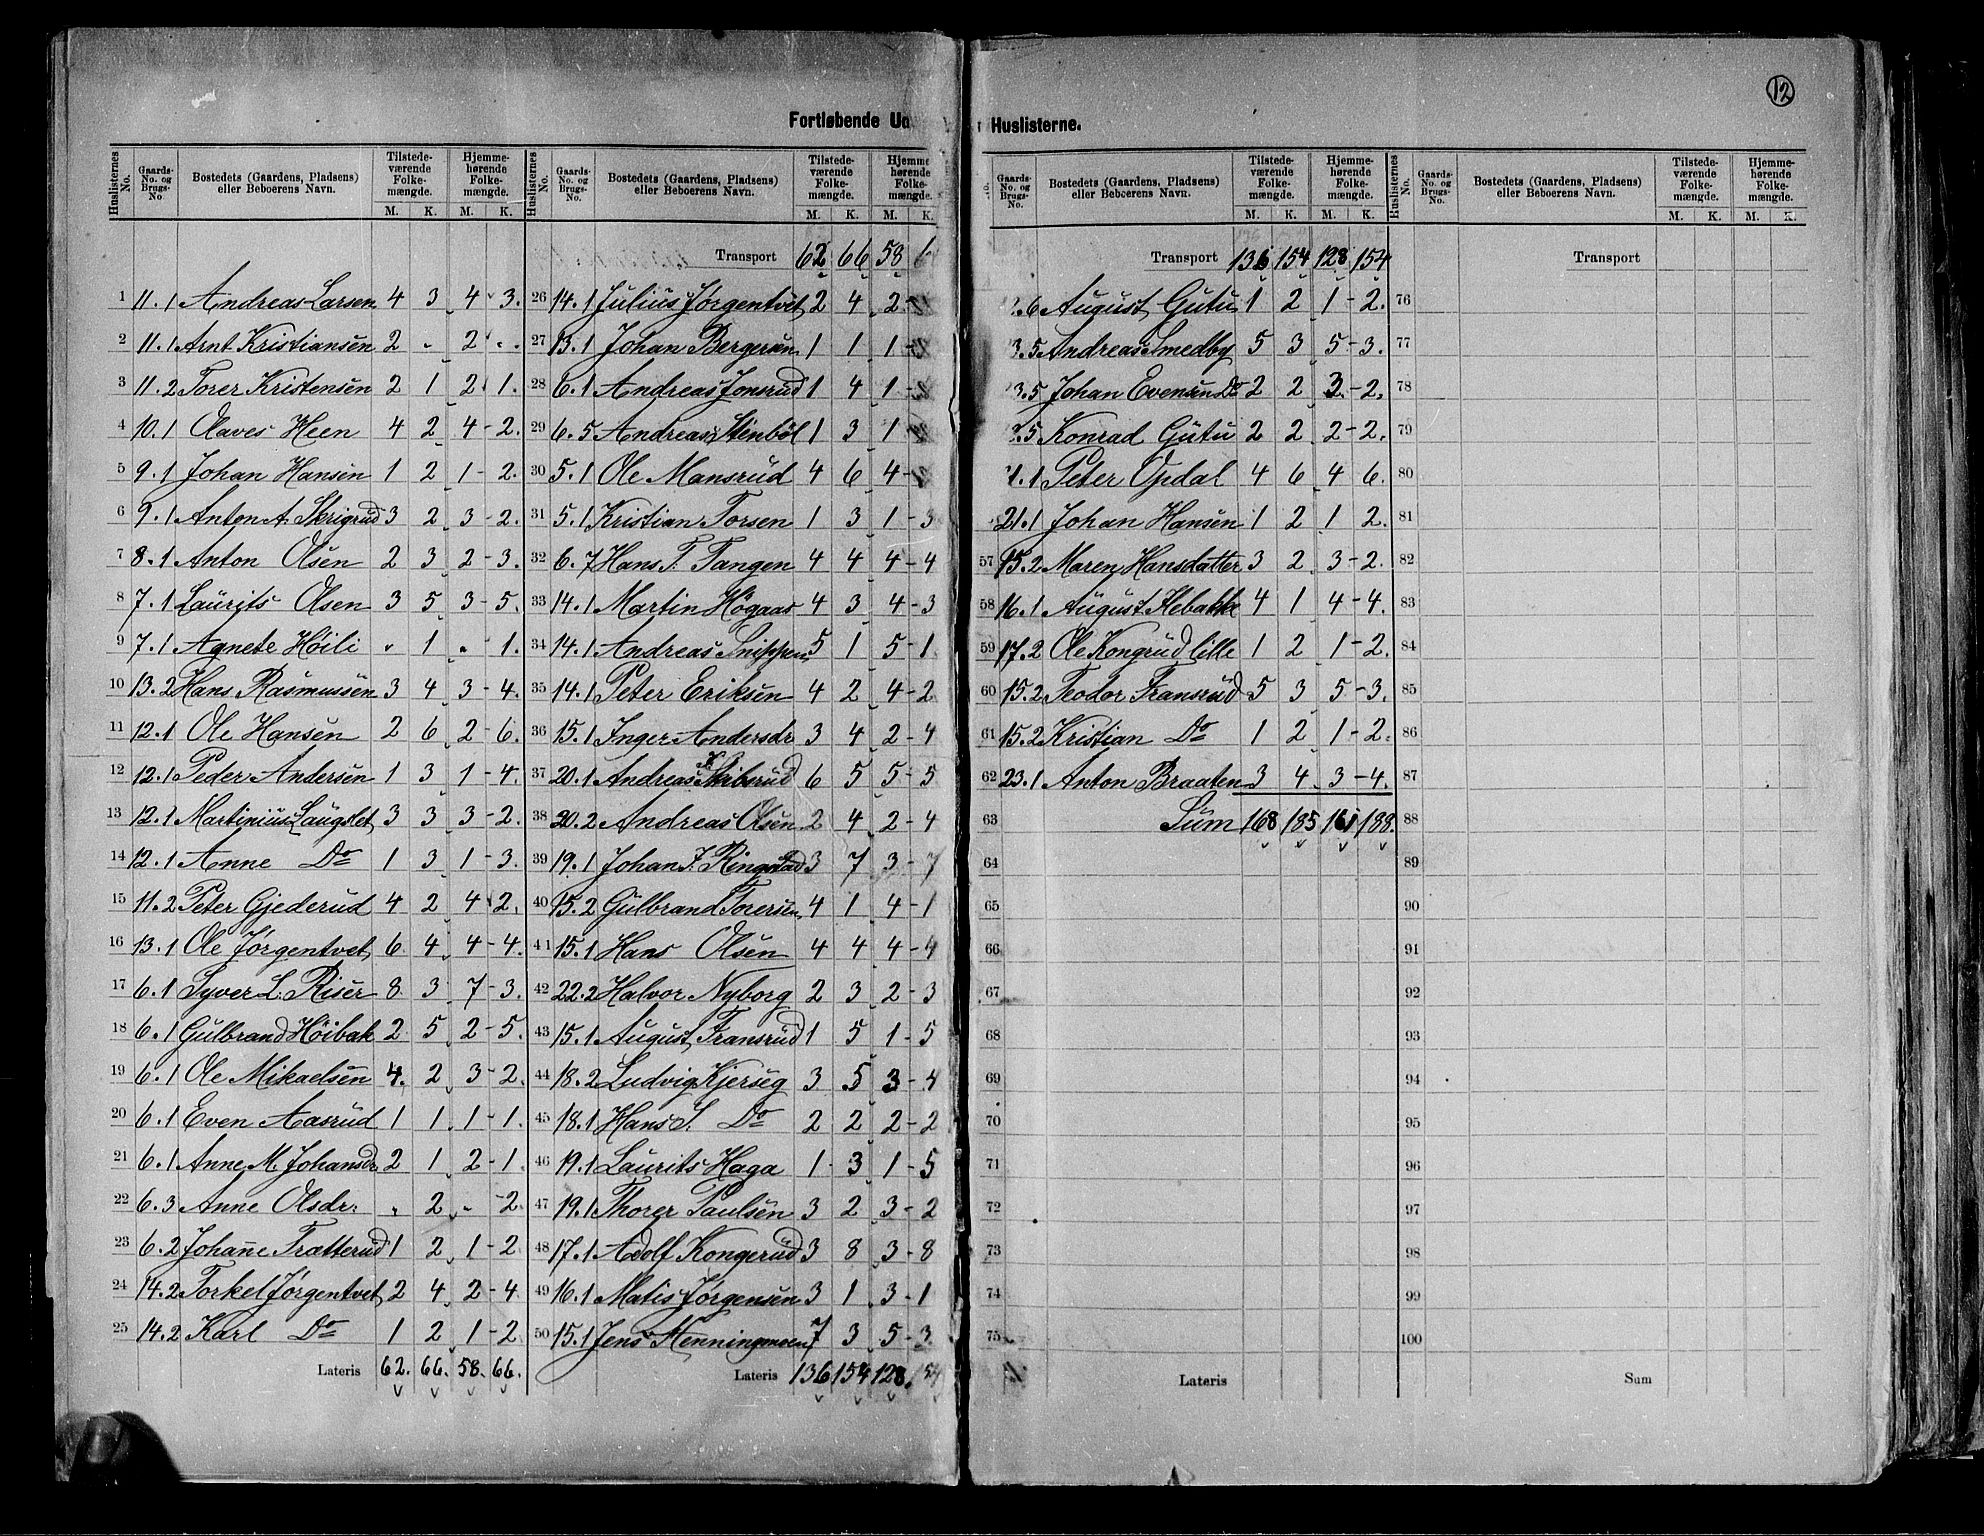 12
Fortløbende Ud
Huslisterne.
Huslisternes No.
Gaards-No. og Brugs-No.
Bostedets (Gaardens, Pladsens) eller Beboerens Navn.
Tilstede-værende Folke-mængde.
Hjemme-hørende Folke-mængde.
M. K. M. K.
1 11.1 Andreas Larsen 4 3 4 3.
2 11.1 Arnt Kristiansen 2 „ 2 „
3 11.2 Torer Kristensen 2 1 2 1.
4 10.1 Olaves Heen 4 2 4 - 2.
5 9.1 Johan Hansen 1 2 1 - 2.
6 9.1 Anton A. Skrigrud 3 2 3 - 2.
7 8.1 Anton Olsen 2 3 2 - 3.
8 7.1 Laurits Olsen 3 5 3 - 5.
9 7.1 Agnete Höili „ 1 „ 1.
10 13.2 Hans Rasmussen 3 4 3 - 4.
11 12.1 Ole Hansen 2 6 2 - 6.
12 12.1 Peder Andersen 1 3 1 - 4.
13 12.1 Martinius Laugslet 3 3 3 - 2.
14 12.1 Anne Do 1 3 1 - 3.
15 11.2 Peter Gjederud 4 2 4 2.
16 13.1 Ole Jørgentvet 6 4 4 - 4.
17 6.1 Syver L. Riser 8 3 7 - 3.
18 6.1 Gulbrand Höibak 2 5 2 - 5.
19 6.1 Ole Mikaelsen 4. 2 3 - 2.
20 6.1 Even Aasrud 1 1 1 - 1.
21 6.1 Anne M. Johansdr 2 1 2 - 1.
22 6.3 Anne Olsdr: „ 2 „ - 2.
23 6.2 Johanne Trætterud 1 2 1 - 2
24 14.2 Torkel Jørgentvet 2 4 2 - 4
25 14.2 Karl Do 1 2 1 - 2
Lateris 62. 66. 58. 66.
Huslisternes No.
Gaards-No. og Brugs-No.
Bostedets (Gaardens, Pladsens) eller Beboerens Navn.
Tilstede-værende Folke-mængde.
Hjemme-hørende Folke-mængde.
M. K. M. K.
Transport 62 66 58
26 14.1 Julius Jørgentvet 2 4 2 -
27 13.1 Johan Bergerün 1 1 1 -
28 6.1 Andreas Jonsrud 1 4 1 -
29 6.5 Andreas Stenböl 1 3 1
30 5.1 Ole Mansrud 4 6 4 -
31 5.1 Kristian Torsen 1 3 1 - 3
32 6.7 Hans T. Tangen 4 4 4 - 4
33 14.1 Martin Högaas 4 3 4 - 3
34 14.1 Andreas Snippen 5 1 5 - 1
35 14.1 Peter Eriksen 4 2 4 - 2
36 15.1 Inger Andersdr 3 4 2 - 4
37 20.1 Andreas Skibsrud 6 5 5 - 5
38 20.2 Andreas Olsen 2 4 2 - 4
39 19.1 Johan J. Ringstad 3 7 3 - 7
40 15.2 Gulbrand Torersen 4 1 4 - 1
41 15.1 Hans Olsen 4 4 4 - 4
42 22.2 Halvor Nyborg 2 3 2 - 3
43 15.1 August Fransrud 1 5 1 - 5
44 18.2 Ludvig Kjerseg 3 5 3 - 4
45 18.1 Hans S. Do 2 2 2 - 2
46 19.1 Laurits Haga 1 3 1 - 5
47 19.1 Thorer Paulsen 3 2 3 - 2
48 17.1 Adolf Kongerud 3 8 3 - 8
49 16.1 Matis Jørgensen 3 1 3 - 1
50 15.1 Jens Henningmoen 7 3 5 - 3
Lateris 136 154 128. 154
Gaards-No. og Brugs-No.
Bostedets (Gaardens, Pladsens) eller Beboerens Navn.
Tilstede-værende Folke-mængde.
Hjemme-hørende Folke-mængde.
M. K. M. K.
Transport 136 154 128 154
6 August Gutu 1 2 1 - 2.
3.5 Andreas Smedby 5 3 5 - 3.
3.5 Johan Evensen Do 2 2 3 - 2.
5 Konrad Gutu 2 2 2 - 2.
1.1 Peter Opdal 4 6 4 6.
21.1 Johan Hansen 1 2 1 2.
57 15.2 Maren Hansdatter 3 2 3 - 2.
58 16.1 August Klebakke 4 1 4 - 4.
59 17.2 Ole Kongrud lille 1 2 1 - 2.
60 15.2 Teodor Fransrud 5 3 5 - 3.
61 15.2 Kristian Do 1 2 1 - 2.
62 23.1 Anton Braaten 3 4 3 - 4.
63 Sum 168 185 161 188.
64
65
66
67
68
69
70
71
72
73
74
75
Lateris
Huslisternes No.
Gaards-No. og Brugs-No.
Bostedets (Gaardens, Pladsens) eller Beboerens Navn.
Tilstede-værende Folke-mængde.
Hjemme-hørende Folke-mængde.
M. K. M. K.
Transport
76
77
78
79
80
81
82
83
84
85
86
87
88
89
90
91
92
93
94
95
96
97
98
99
100
Sum